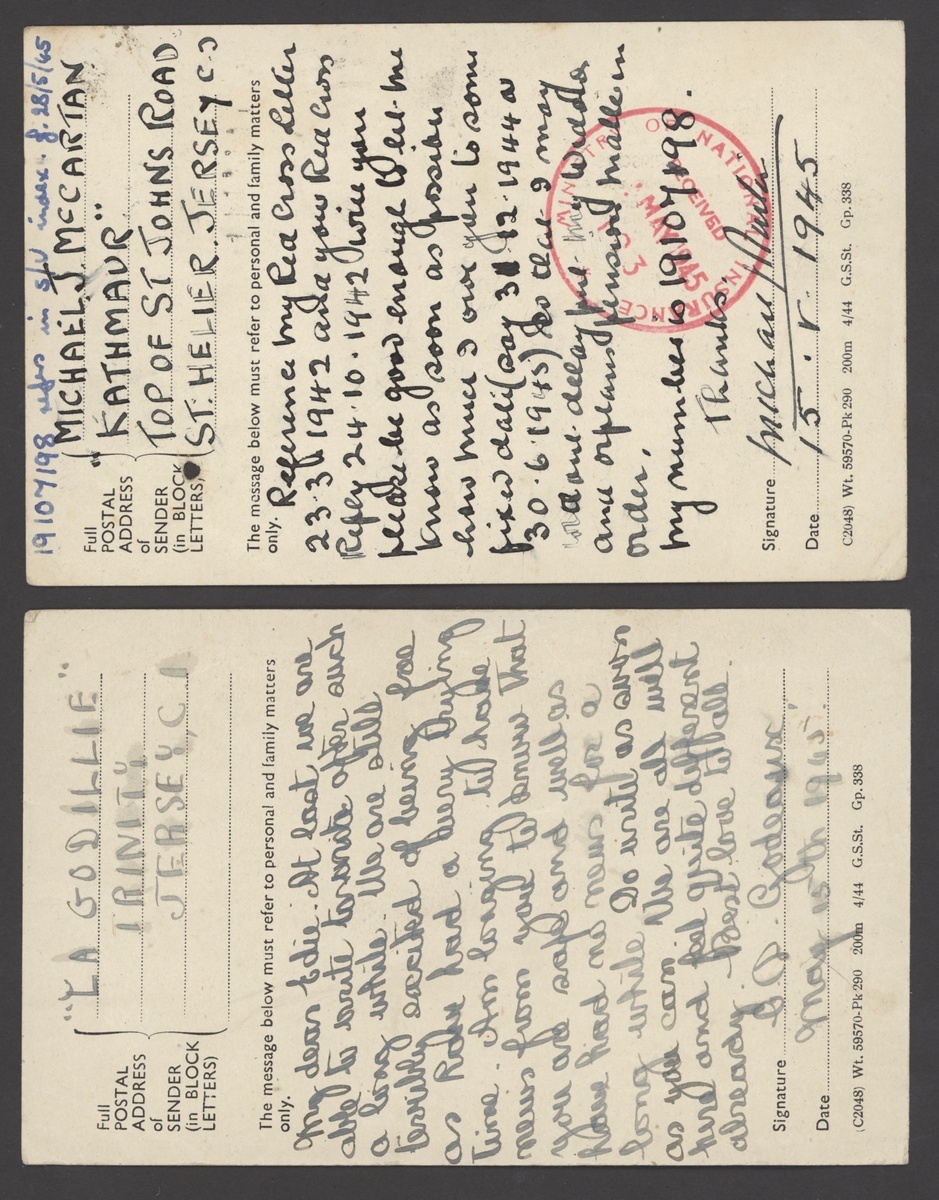 19107198 refers in s/v index. J. 28/5/45
Full
POSTAL
ADDRESS
of
SENDER
(in BLOCK
LETTERS)
MICHAEL J. McCARTAN
"KATHMAUR"
TOP OF ST JOHNS ROAD
ST. HELIER. JERSEY C-I
The message below must refer to personal and family matters
only.
Reference my Red Cross Letter
23.3.1942 and your Red Cross
Reply 24.10.1942 will you
please be good enough to let me
know as soon as possible
how much I owe you to some
fixed date (say 31.12.1944 or
30.6.1945) so that I may
and one delay me the Widows
and orphans pension made in
order.
My number is 19107498.
Thanks.
Signature Michael
Date 15.5.1945
C2048) Wt. 59570-Pk 290 200m 4/44 G.S.St. Gp. 338
MINISTRY OF NATIONAL INSURANCE
RECEIVED
MAY 1945
163
Full
POSTAL
ADDRESS
of
SENDER
(in BLOCK
LETTERS)
"LA GODILLIE"
TRINITY
JERSEY, C I
The message below must refer to personal and family matters
only.
My dear Edie. At last we are
able to write to write after such
a long while. We are still
terribly excited of being free
as Rake had a very trying
time. Am longing to have
news from you to know that
you are safe and well as
have had no news for a
long while. Do write as soon
as you can. We are all well
here and feel quite different
already. Best love to all.
Signature Godeaux
Date May 15th 1945.
(C2048) Wt. 59570-Pk 290 200m 4/44 G.S.St. Gp. 338